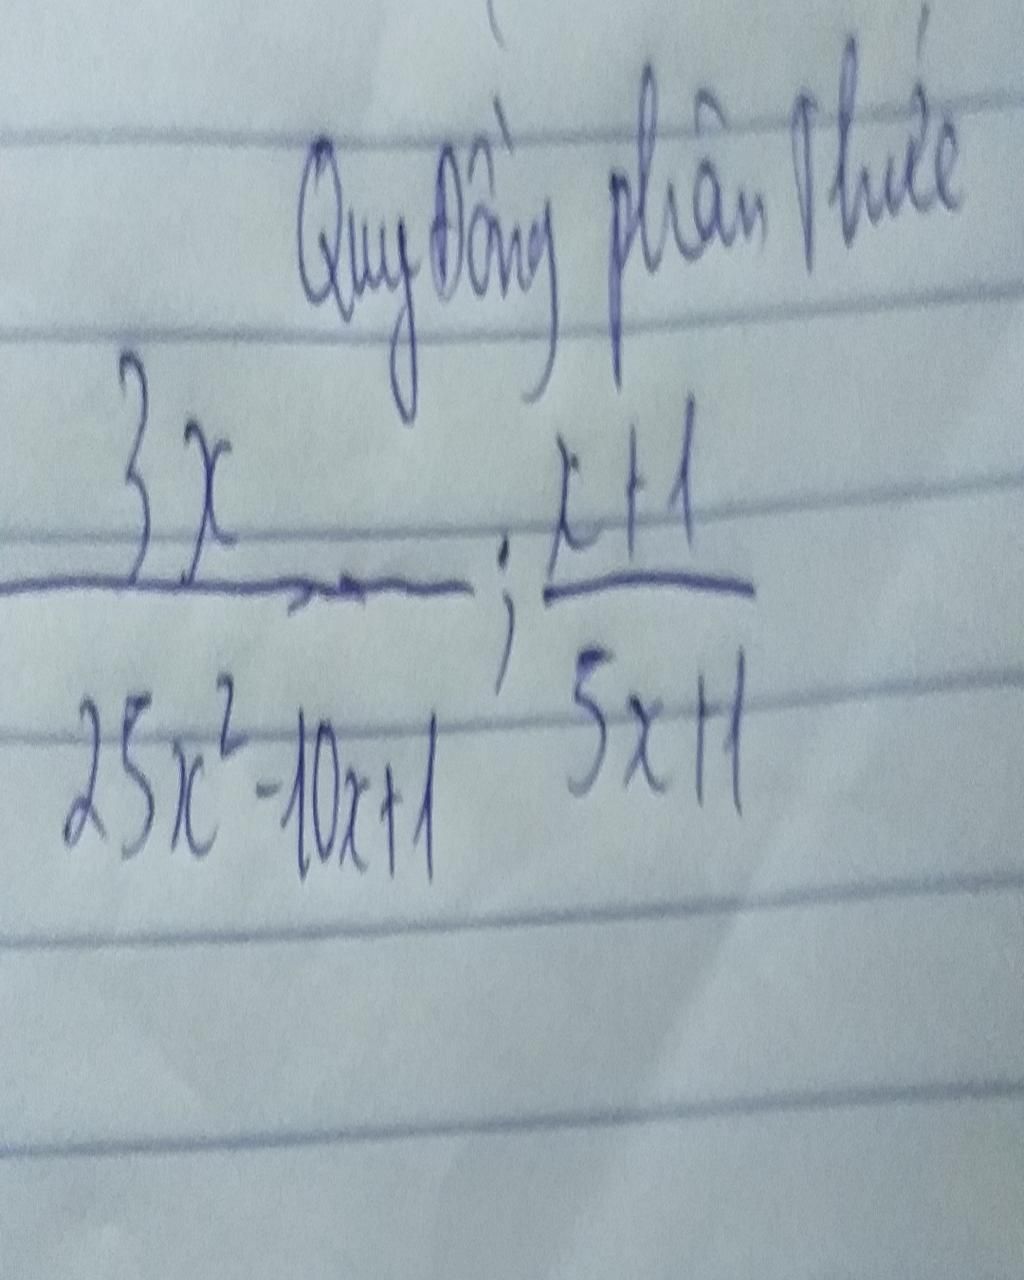 Quy Đồng phân thức
3x / 25x² - 10x + 1 ; x + 1 / 5x + 1